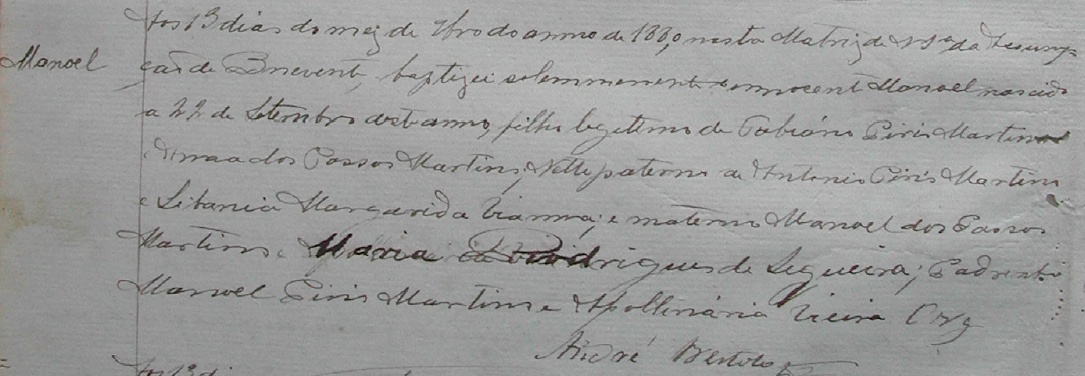 Aos 13 dias do mez de 9bro do anno de 1880 nesta Matriz de N Sra da Assump
Manoel
ção de Benevente, baptizei solemnemente o innocente Manoel nascido
a 22 de Setembro deste anno, filho legitimo de Fabiano Piris Martins
e dos Passos Martins, Netto paterno de Antonio Piris Martins
e Libania Margarida Vianna; e materno Manoel dos Passos
Martins e Maria Rodrigues de Segueira; Padrinhos
Manoel Piris Martins e Apollinaria Vieira
André
Aos 13 di